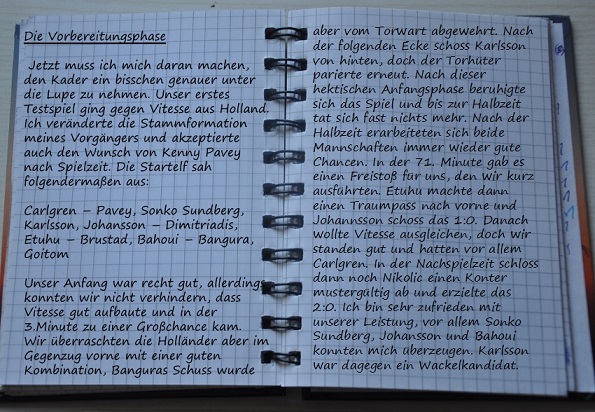 Die Vorbereitungsphase
Jetzt muss ich mich daran machen,
den Kader ein bisschen genauer unter
die Lupe zu nehmen. Unser erstes
Testspiel ging gegen Vitesse aus Holland.
Ich veränderte die Stammformation
meines Vorgängers und akzeptierte
auch den Wunsch von Kenny Pavey
nach Spielzeit. Die Startelf sah
folgendermaßen aus:
Carlgren – Pavey, Sonko Sundberg,
Karlsson, Johansson – Dimitriadis,
Etuhu – Brustad, Bahoui – Bangura,
Goitom
Unser Anfang war recht gut, allerdings
konnten wir nicht verhindern, dass
Vitesse gut aufbaute und in der
3.Minute zu einer Großchance kam.
Wir überraschten die Holländer aber im
Gegenzug vorne mit einer guten
Kombination, Banguras Schuss wurde
aber vom Torwart abgewehrt. Nach
der folgenden Ecke schoss Karlsson
von hinten, doch der Torhüter
parierte erneut. Nach dieser
hektischen Anfangsphase beruhigte
sich das Spiel und bis zur Halbzeit
tat sich fast nichts mehr. Nach der
Halbzeit erarbeiteten sich beide
Mannschaften immer wieder gute
Chancen. In der 71. Minute gab es
einen Freistoß für uns, den wir kurz
ausführten. Etuhu machte dann
einen Traumpass nach vorne und
Johannsson schoss das 1:0. Danach
wollte Vitesse ausgleichen, doch wir
standen gut und hatten vor allem
Carlgren. In der Nachspielzeit schloss
dann noch Nikolic einen Konter
mustergültig ab und erzielte das
2:0. Ich bin sehr zufrieden mit
unserer Leistung, vor allem Sonko
Sundberg, Johansson und Bahoui
konnten mich überzeugen. Karlsson
war dagegen ein Wackelkandidat.